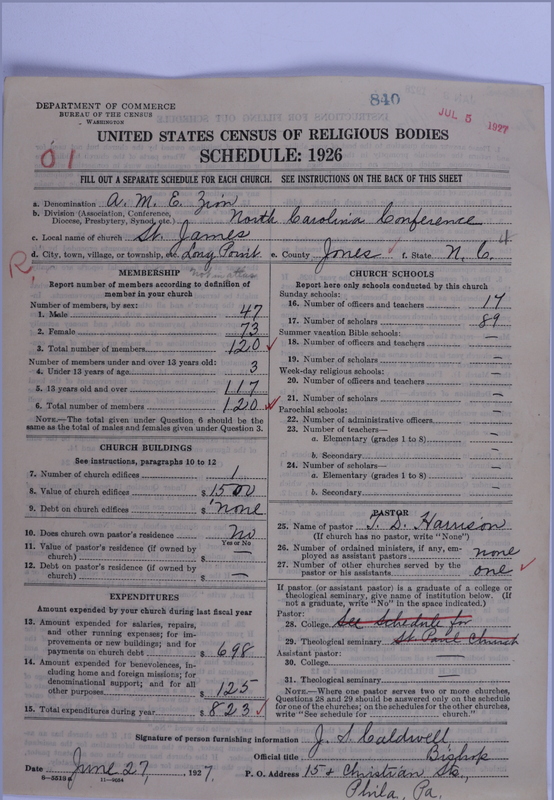 840
JUL 5 1927
DEPARTMENT OF COMMERCE
BUREAU OF THE CENSUS
WASHINGTON
UNITED STATES CENSUS OF RELIGIOUS BODIES
SCHEDULE: 1926
01
FILL OUT A SEPARATE SCHEDULE FOR EACH CHURCH. SEE INSTRUCTIONS ON THE BACK OF THIS SHEET
a. Denomination A. M. E. Zion
b. Division (Association, Conference, Diocese, Presbytery, Synod, etc.) North Carolina Conference
c. Local name of church St. James
4
d. City, town, village, or township, etc. Long Point e. County Jones f. State N. C.
R
MEMBERSHIP
Report number of members according to definition of member in your church
Number of members, by sex:
1. Male 47
2. Female 73
3. Total number of members 120
Number of members under and over 13 years old:
4. Under 13 years of age 3
5. 13 years old and over 117
6. Total number of members 120
NOTE.—The total given under Question 6 should be the
same as the total of males and females given under Question 3.
CHURCH BUILDINGS
See instructions, paragraphs 10 to 12
7. Number of church edifices 1
8. Value of church edifices $1500
9. Debt on church edifices $none
10. Does church own pastor's residence No
Yes or No
11. Value of pastor's residence (if owned by
church) $ —
12. Debt on pastor's residence (if owned by
church) $ —
EXPENDITURES
Amount expended by your church during last fiscal year
13. Amount expended for salaries, repairs,
and other running expenses; for im-
provements or new buildings; and for
payments on church debt $698
14. Amount expended for benevolences, in-
cluding home and foreign missions; for
denominational support; and for all
other purposes $125
15. Total expenditures during year $823
CHURCH SCHOOLS
Report here only schools conducted by this church
Sunday schools:
16. Number of officers and teachers 17
17. Number of scholars 89
Summer vacation Bible schools:
18. Number of officers and teachers —
19. Number of scholars —
Week-day religious schools:
20. Number of officers and teachers —
21. Number of scholars —
Parochial schools:
22. Number of administrative officers —
23. Number of teachers—
a. Elementary (grades 1 to 8) —
b. Secondary —
24. Number of scholars—
a. Elementary (grades 1 to 8) —
b. Secondary —
PASTOR
25. Name of pastor J. D. Harrison
(If church has no pastor, write "None")
26. Number of ordained ministers, if any, em-
ployed as assistant pastors none
27. Number of other churches served by the
pastor or his assistants one
If pastor (or assistant pastor) is a graduate of a college or
theological seminary, give name of institution below. (If
not a graduate, write "No" in the space indicated.)
Pastor:
28. College See Schedule for
29. Theological seminary St. Paul Church
Assistant pastor:
30. College —
31. Theological seminary —
NOTE.—Where one pastor serves two or more churches,
Questions 28 and 29 should be answered only on the schedule
for one of the churches; on the schedules for the other churches,
write "See schedule for church."
Signature of person furnishing information J. S. Caldwell
Official title Bishop
Date June 27, 1927. P. O. Address 15 & Christian Sts.,
Phila, Pa.